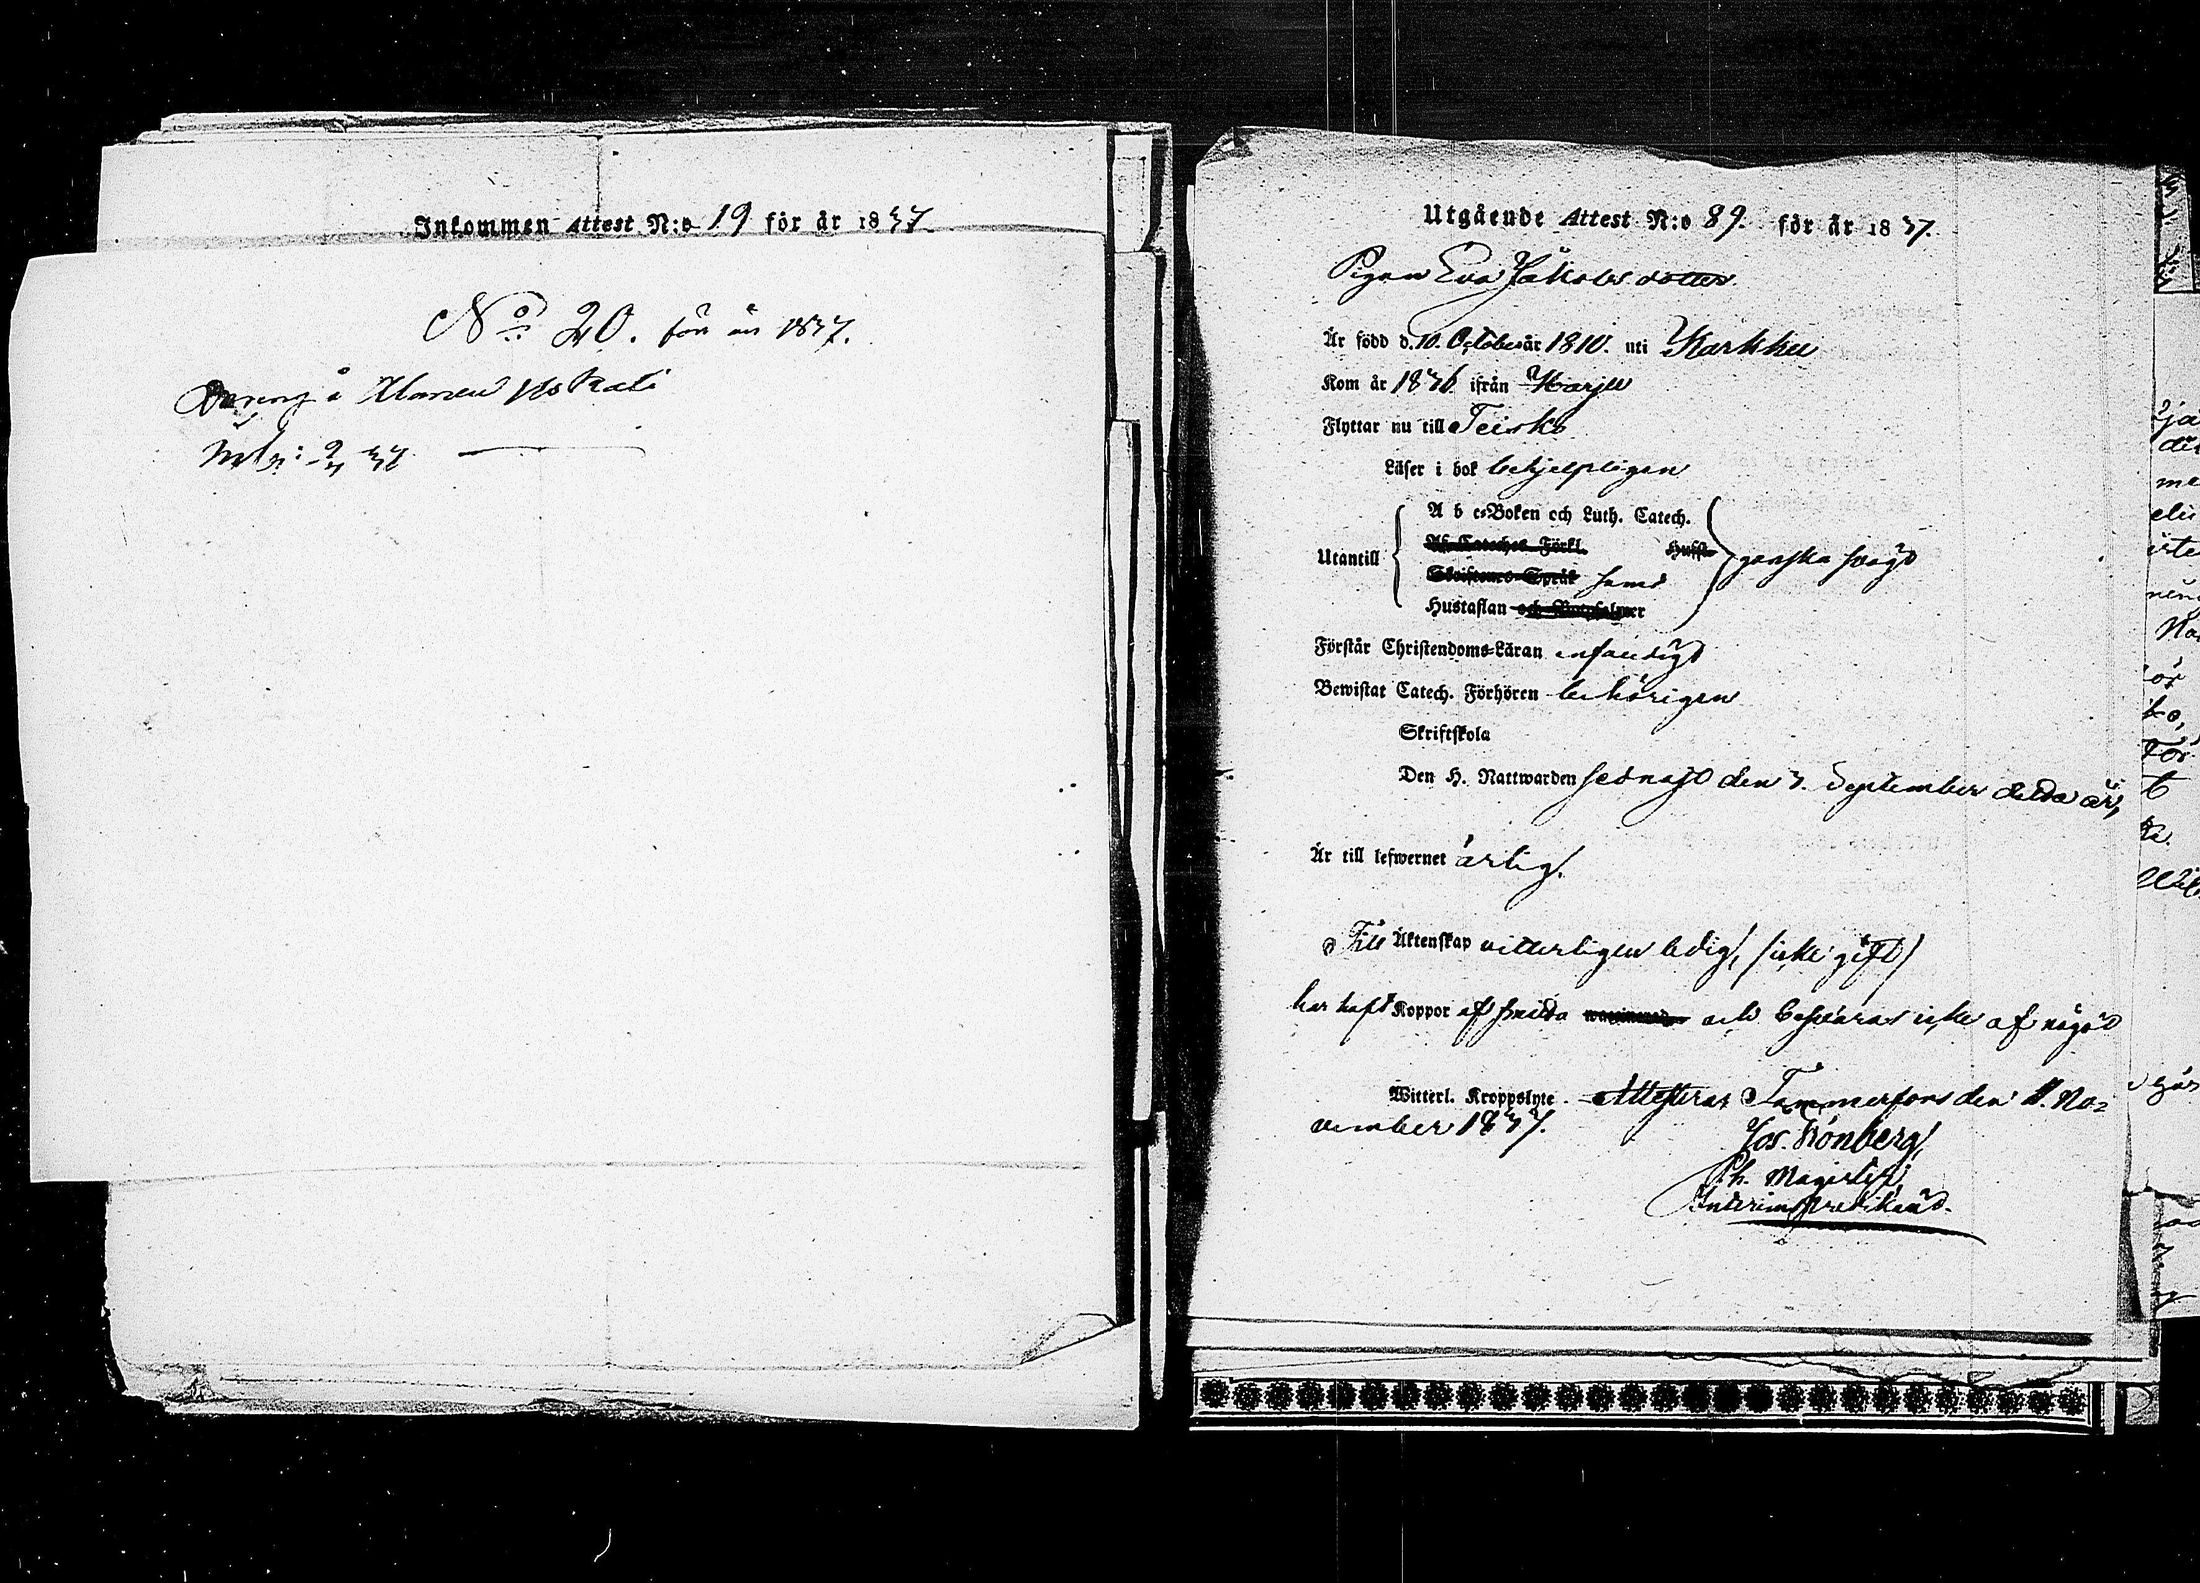 Inkommen Attest N:o 19 för år 1837.
No 20. för år 1837.
Dreng å
Utgående Attest N:o 89. för år 1837.
Pigan Eva Jakobsdotter
Är född d. 10. October år 1810. uti Karkku
Kom år 1836 ifrån Harju
Flyttar nu till Teisko
Läser i bok behjelpligen
A b c-Boken och Luth. Catech.
Af. Cateches Förkl. Husst.
Utantill ganska svagt
Skriftenes-Språk samt
Hustaflan och Botpsalmer
Förstår Christendoms-Läran enfaldigt
Bewistat Catech. Förhören behörigen
Skriftskola
Den H. Nattwarden sednast den 3. September detta år,
Är till lefwernet ärlig,
Till Äktenskap vitterligen ledig, (icke gift)
har haft Koppor af och besväras icke af något
Witterl. Kroppslyte. Attesterar Tammerfors den 11. No-
vember 1837.
Jos. Grönberg,
Ph. Magister,
Interimspredikand.